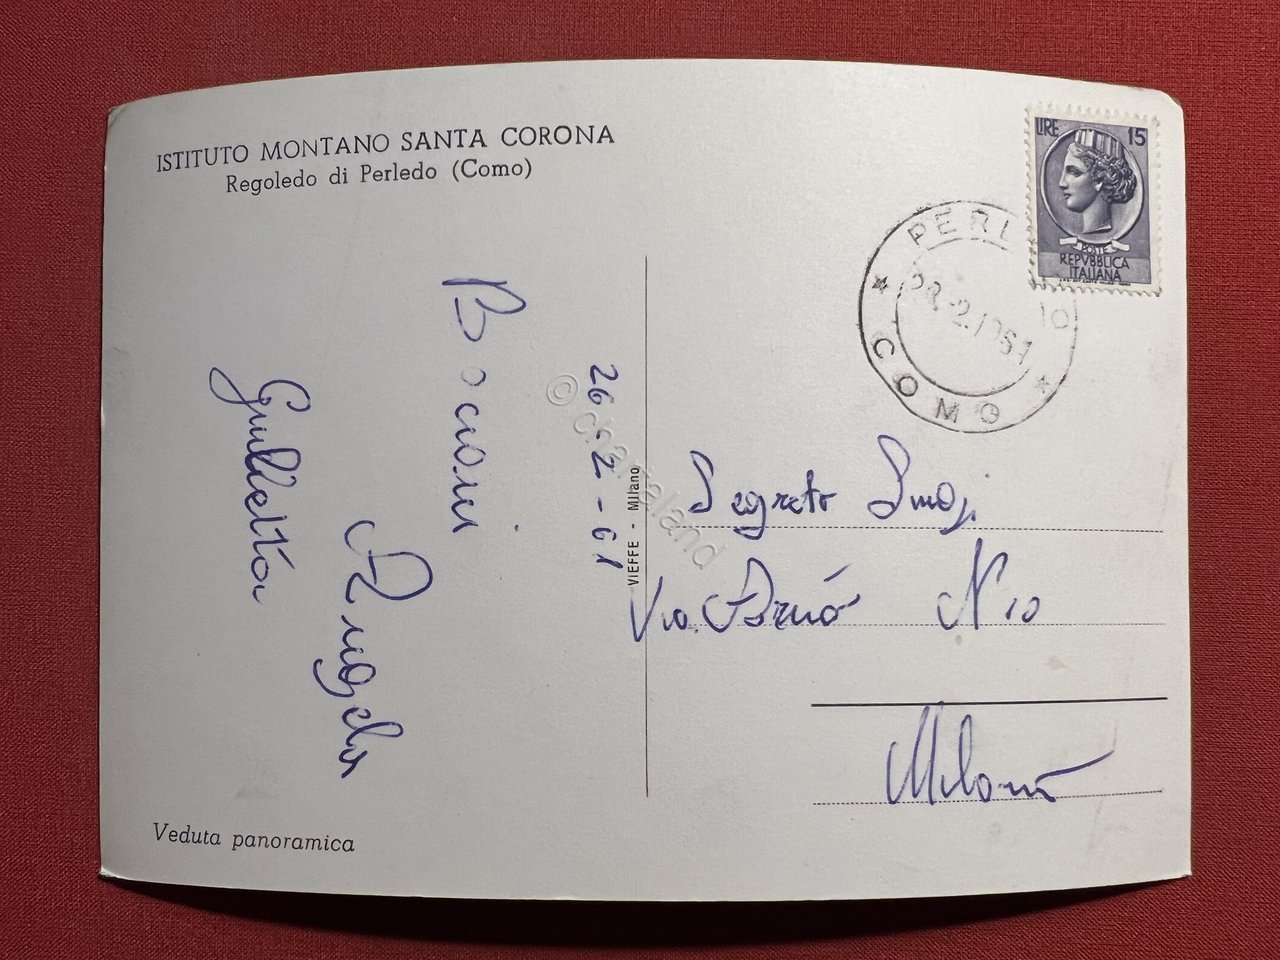 ISTITUTO MONTANO SANTA CORONA
Regoledo di Perledo (Como)
26-2-61
Bacioni
Angela
Giulietta
Veduta panoramica
VIEFFE - Milano
© cartaland
LIRE 15
POSTE
REPVBBLICA
ITALIANA
PERL DO
28.2.1961
* COMO *
Segreto
Via
N 10
Milano